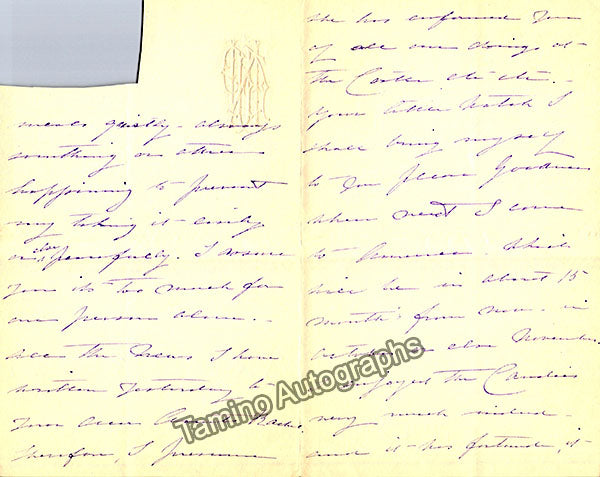 meals quietly - always
something or other
happining to prevent
my taking it easily
or peacefully. I assure
you its too much for
one person alone. -
all the News I have
written Yesterday to
Your dear
therefor, I presume
she has informed You
of all our doings at
the Castle etc etc. -
Your little Watch I
shall bring myself
to You please Goodness
when next I come
to America. Which
will be in about 15
months from now - in
October or else November.
I enjoyed the Candies
very much indeed -
and it has fortunately
Tamino Autographs